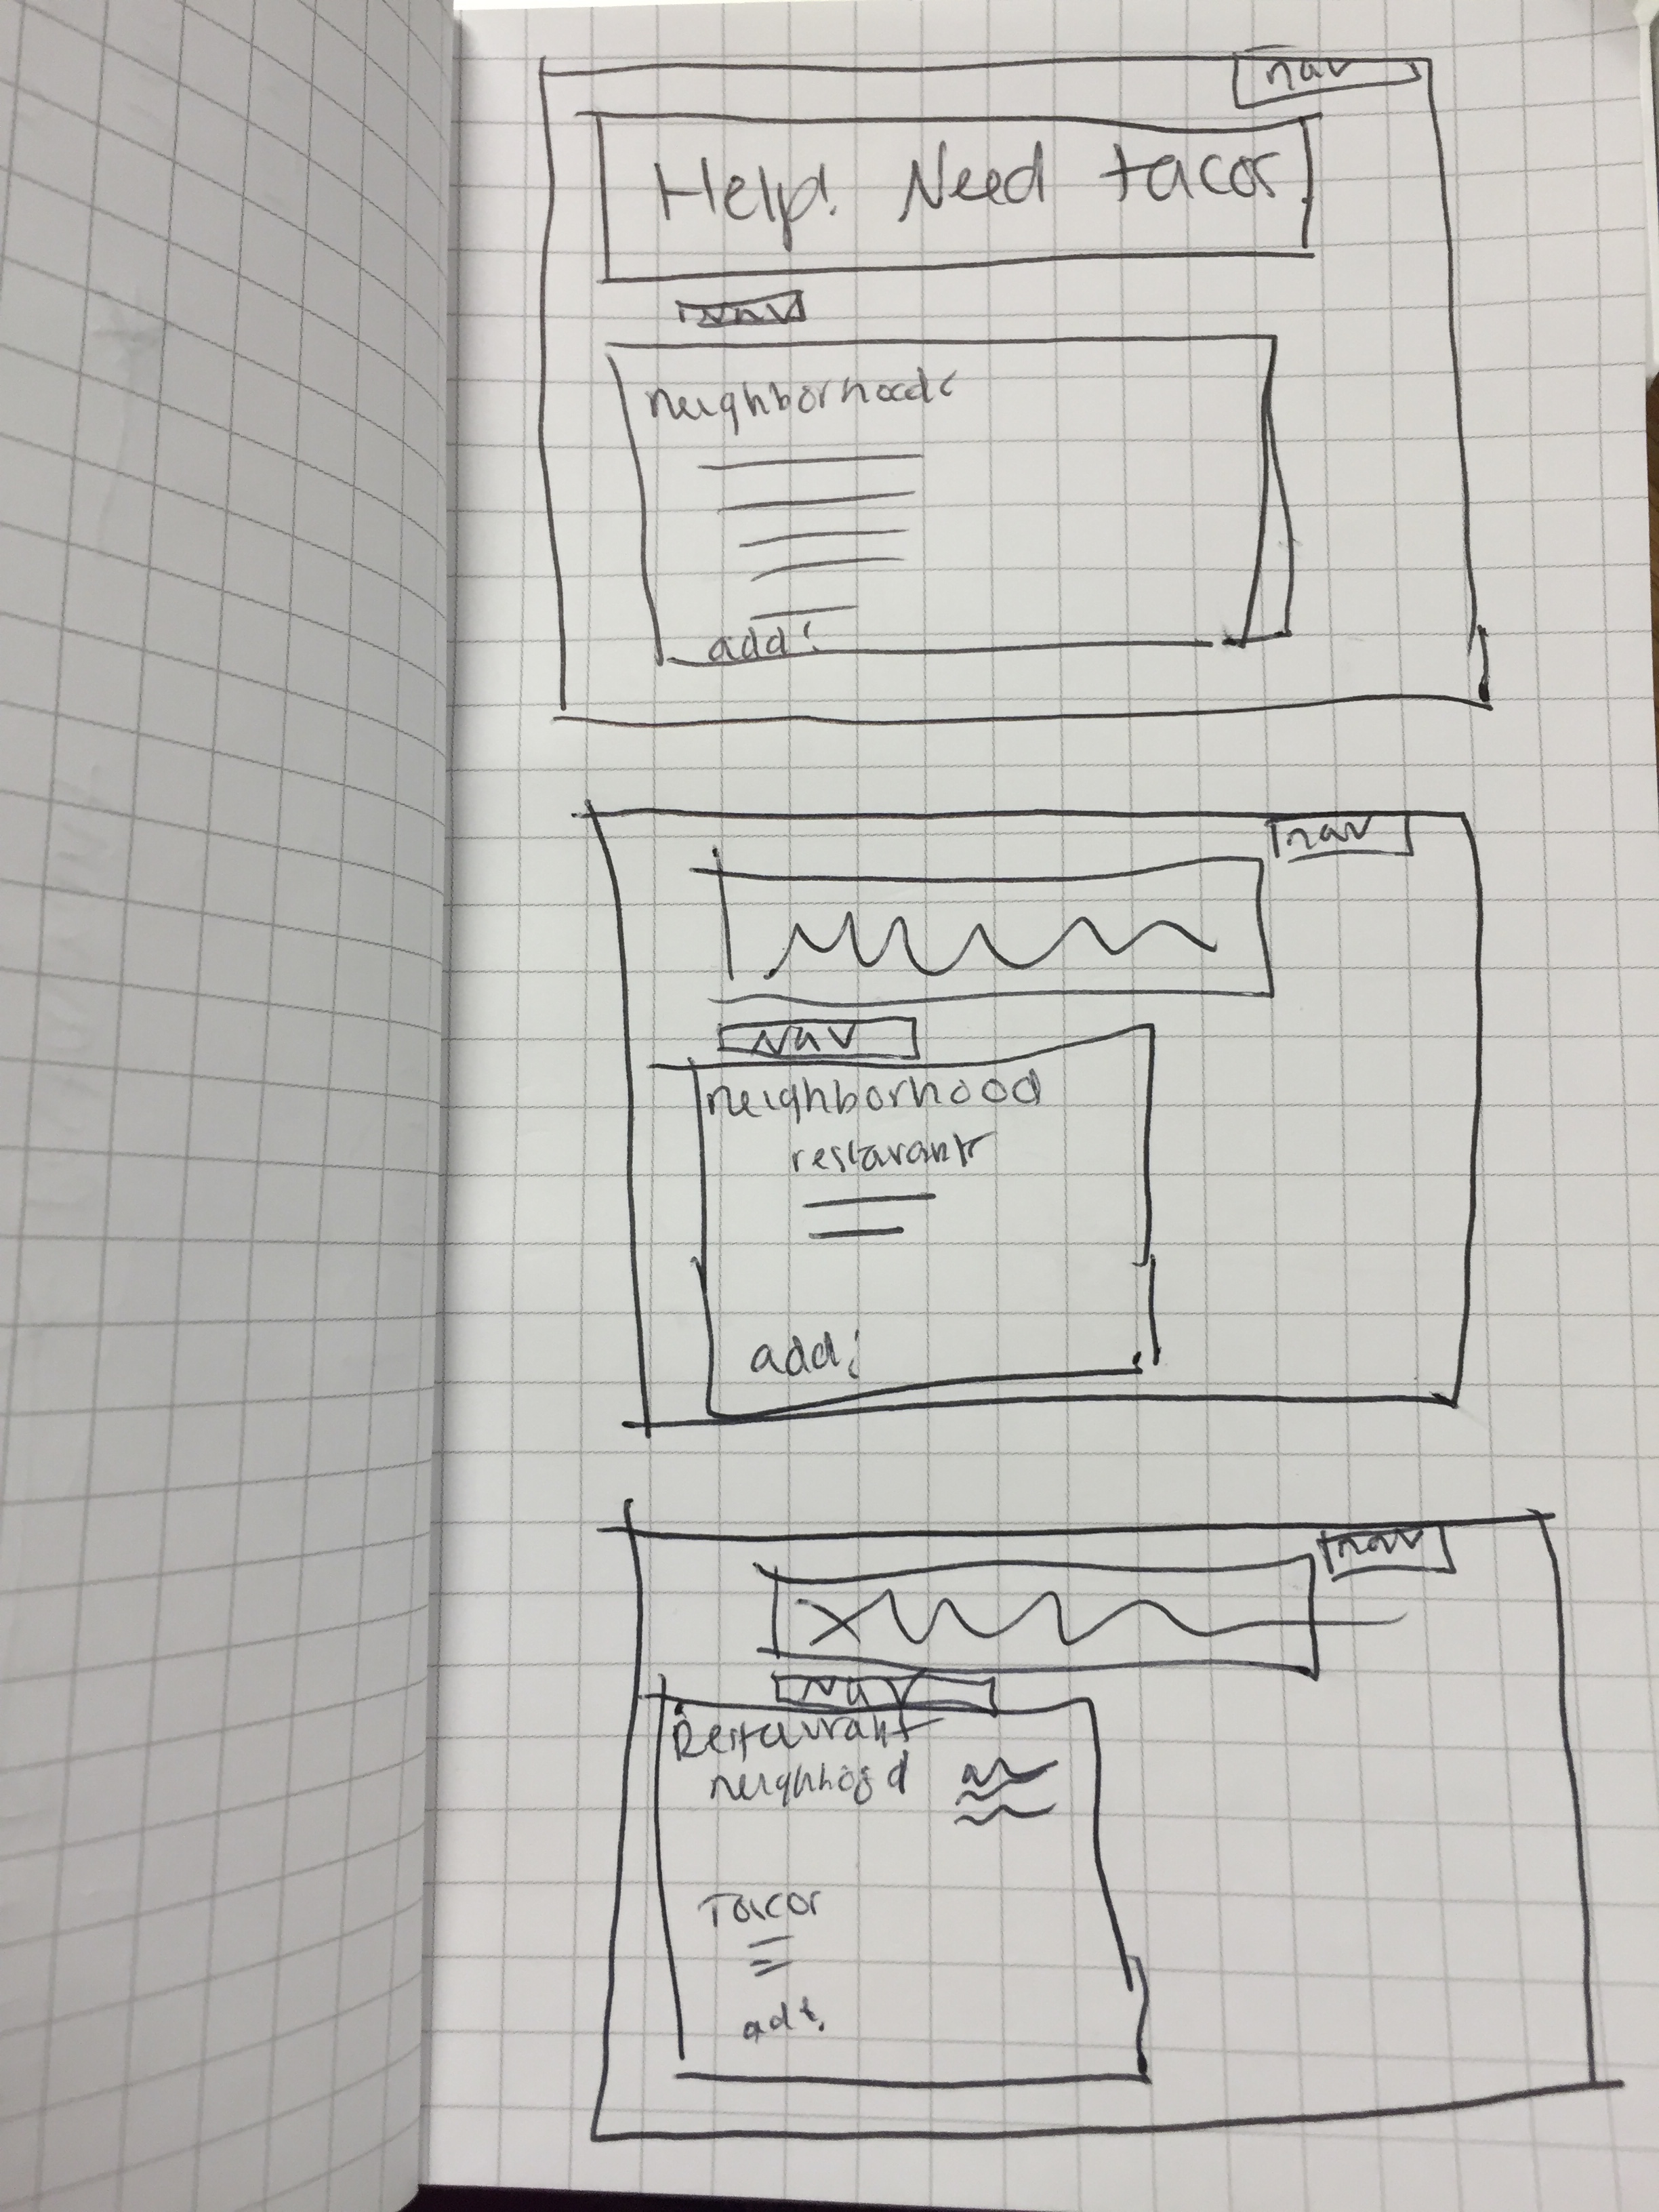 nav
Help! Need tacos!
nav
neighborhoods
add!
nav
nav
neighborhood
restarant
add!
nav
nav
Restaurant
neighhood
Tacos
add!